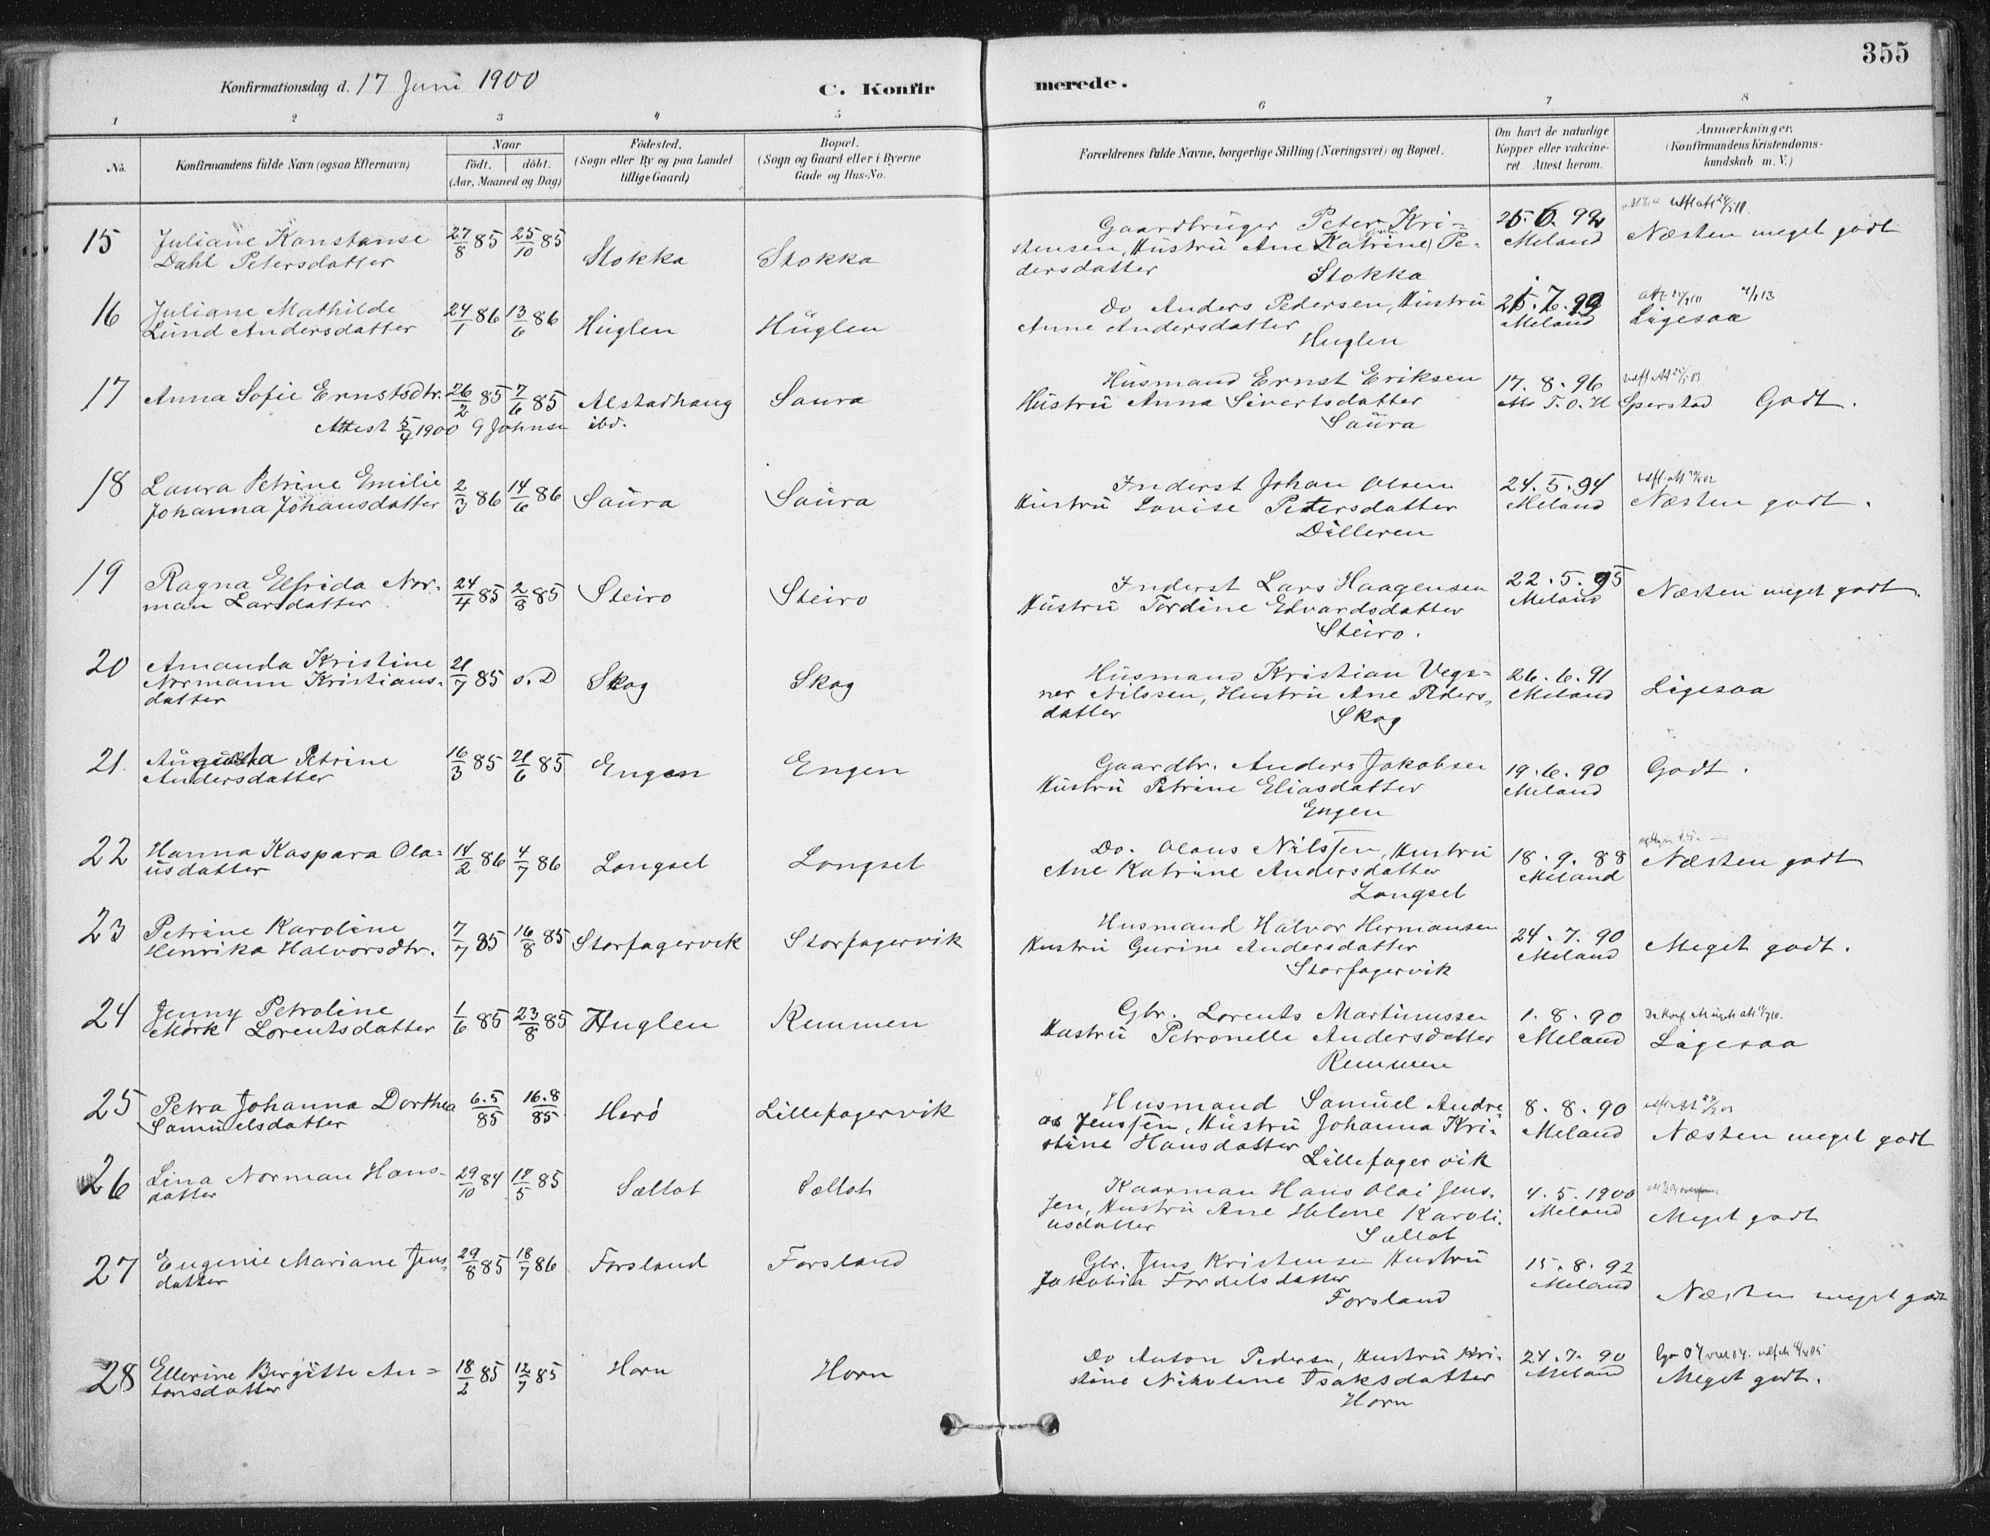 355
Konfirmationsdag d. 17 Juni 1900
C. Konfirmerede.
1 2 3 4 5 6 7 8
No. Konfirmandens fulde Navn (ogsaa Efternavn) Naar født. døbt. (Aar, Maaned og Dag) Fødested. (Sogn eller By og paa Landet tillige Gaard) Bopæl. (Sogn og Gaard eller i Byerne Gade og Hus-No. Forældrenes fulde Navne, borgerlige Stilling (Næringsvei) og Bopæl. Om havt de naturlige Kopper eller vaccineret. Attest herom. Anmærkninger. (Konfirmandens Kristendomskundskab m. V.)
15 Juliane Konstanse 27/8 85 25/10 85 Stokka Stokka Gaardbruger Peter Kri- Meland Næsten meget godt
Dahl Petersdatter stensen, Hustru Ane Katrine Pe-
dersdatter Stokka
16 Juliane Mathilde 24/1 86 13/6 86 Huglen Huglen Do Anders Pedersen, Hustru Meland Ligesaa
Lund Andersdatter Anne Andersdatter
Huglen
17 Anna Sofie Ernstsdtr. 26/2 85 7/6 85 Alstadhaug Saura Husmand Ernst Eriksen 17.8.96 Godt.
Attest 5/4 1900 G Johnse ibd. Hustru Anna Sivertsdatter T.O.H Sperstad
Saura
18 Laura Petrine Emilie 2/3 86 14/6 86 Saura Saura Inderst Johan Olsen 24.5.94 Næsten godt.
Johanna Johansdatter Hustru Lovise Petersdatter Meland
Dilleren
19 Ragna Elfrida Nor- 24/4 85 2/8 85 Steiro Steiro Inderst Lars Haagensen 22.5.95 Næsten meget godt.
man Larsdatter Hustru Tordine Edvardsdatter Meland
Steiro.
20 Amanda Kristine 21/7 85 s. D Skog Skog Husmand Kristian Vegs- 26.6.91 Ligesaa
Normann Kristians- ner Nilssen, Hustru Ane Peders- Meland
datter datter Skog
21. Augusta Petrine 16/3 85 21/6 85 Engen Engen Gaardbr. Anders Jakobsen 19.6.90 Godt.
Andersdatter Hustru Petrine Eliasdatter Meland
Engen
22 Hanna Kaspara Ola- 14/2 86 4/7 86 Longset Longset Do. Olaus Nilssen, Hustru 18.9.88 Næsten godt
usdatter Ane Katrine Andersdatter Meland
Longset
23 Petrine Karoline 7/7 85 16/8 85 Storfagervik Storfagervik Husmand Halvor Hermansen 24.7.90 Meget godt.
Henrika Halvorsdtr. Hustru Gurine Andersdatter Meland
Storfagervik
24 Jenny Petroline 1/6 85 23/8 85 Huglen Remmen Gbr. Lorents Martinussen 1.8.90 Ligesaa
Mørk Lorentsdatter Hustru Petronelle Andersdatter Meland
Remmen
25 Petra Johanna Dorthea 6.5/85 16.8/85 Herø Lillefagervik Husmand Samuel Andre 8.8.90 Næsten meget godt
Samuelsdatter as Jenssen, Hustru Johanna Kri- Meland
stine Hansdatter
Lillefagervik
26 Lina Norman Hans- 29/10 84 17/5 85 Søllot Søllot Kaarman Hans Olai Jens- 4.5.1900 Meget godt
datter sen, Hustru Ane Helene Karoli- Meland
usdatter Søllot
27 Eugenie Mariane Jens- 29/8 85 18/7 86 Forsland Forsland Gbr. Jens Kristensen Hustru 15.8.92 Næsten meget godt
datter Jakobia Fordelsdatter Meland
Forsland
28 Ellerine Bergitte An- 18/2 85 12/7 85 Horn Horn Do Anton Pedersen, Hustru Kri- 24.7.90 Meget godt.
tonsdatter stine Nikoline Isaksdatter Meland
Horn